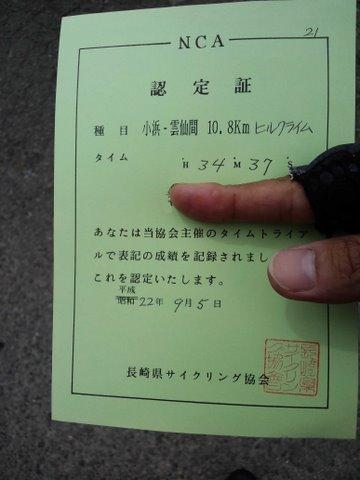 21
NCA
認定証
種目 小浜-雲仙間 10.8Km ヒルクライム
タイム H 34 M 37 S
あなたは当協会主催のタイムトライア
ルで表記の成績を記録されまし
これを認定いたします。
平成
昭和 22年 9月 5日
長崎県サイクリング協会